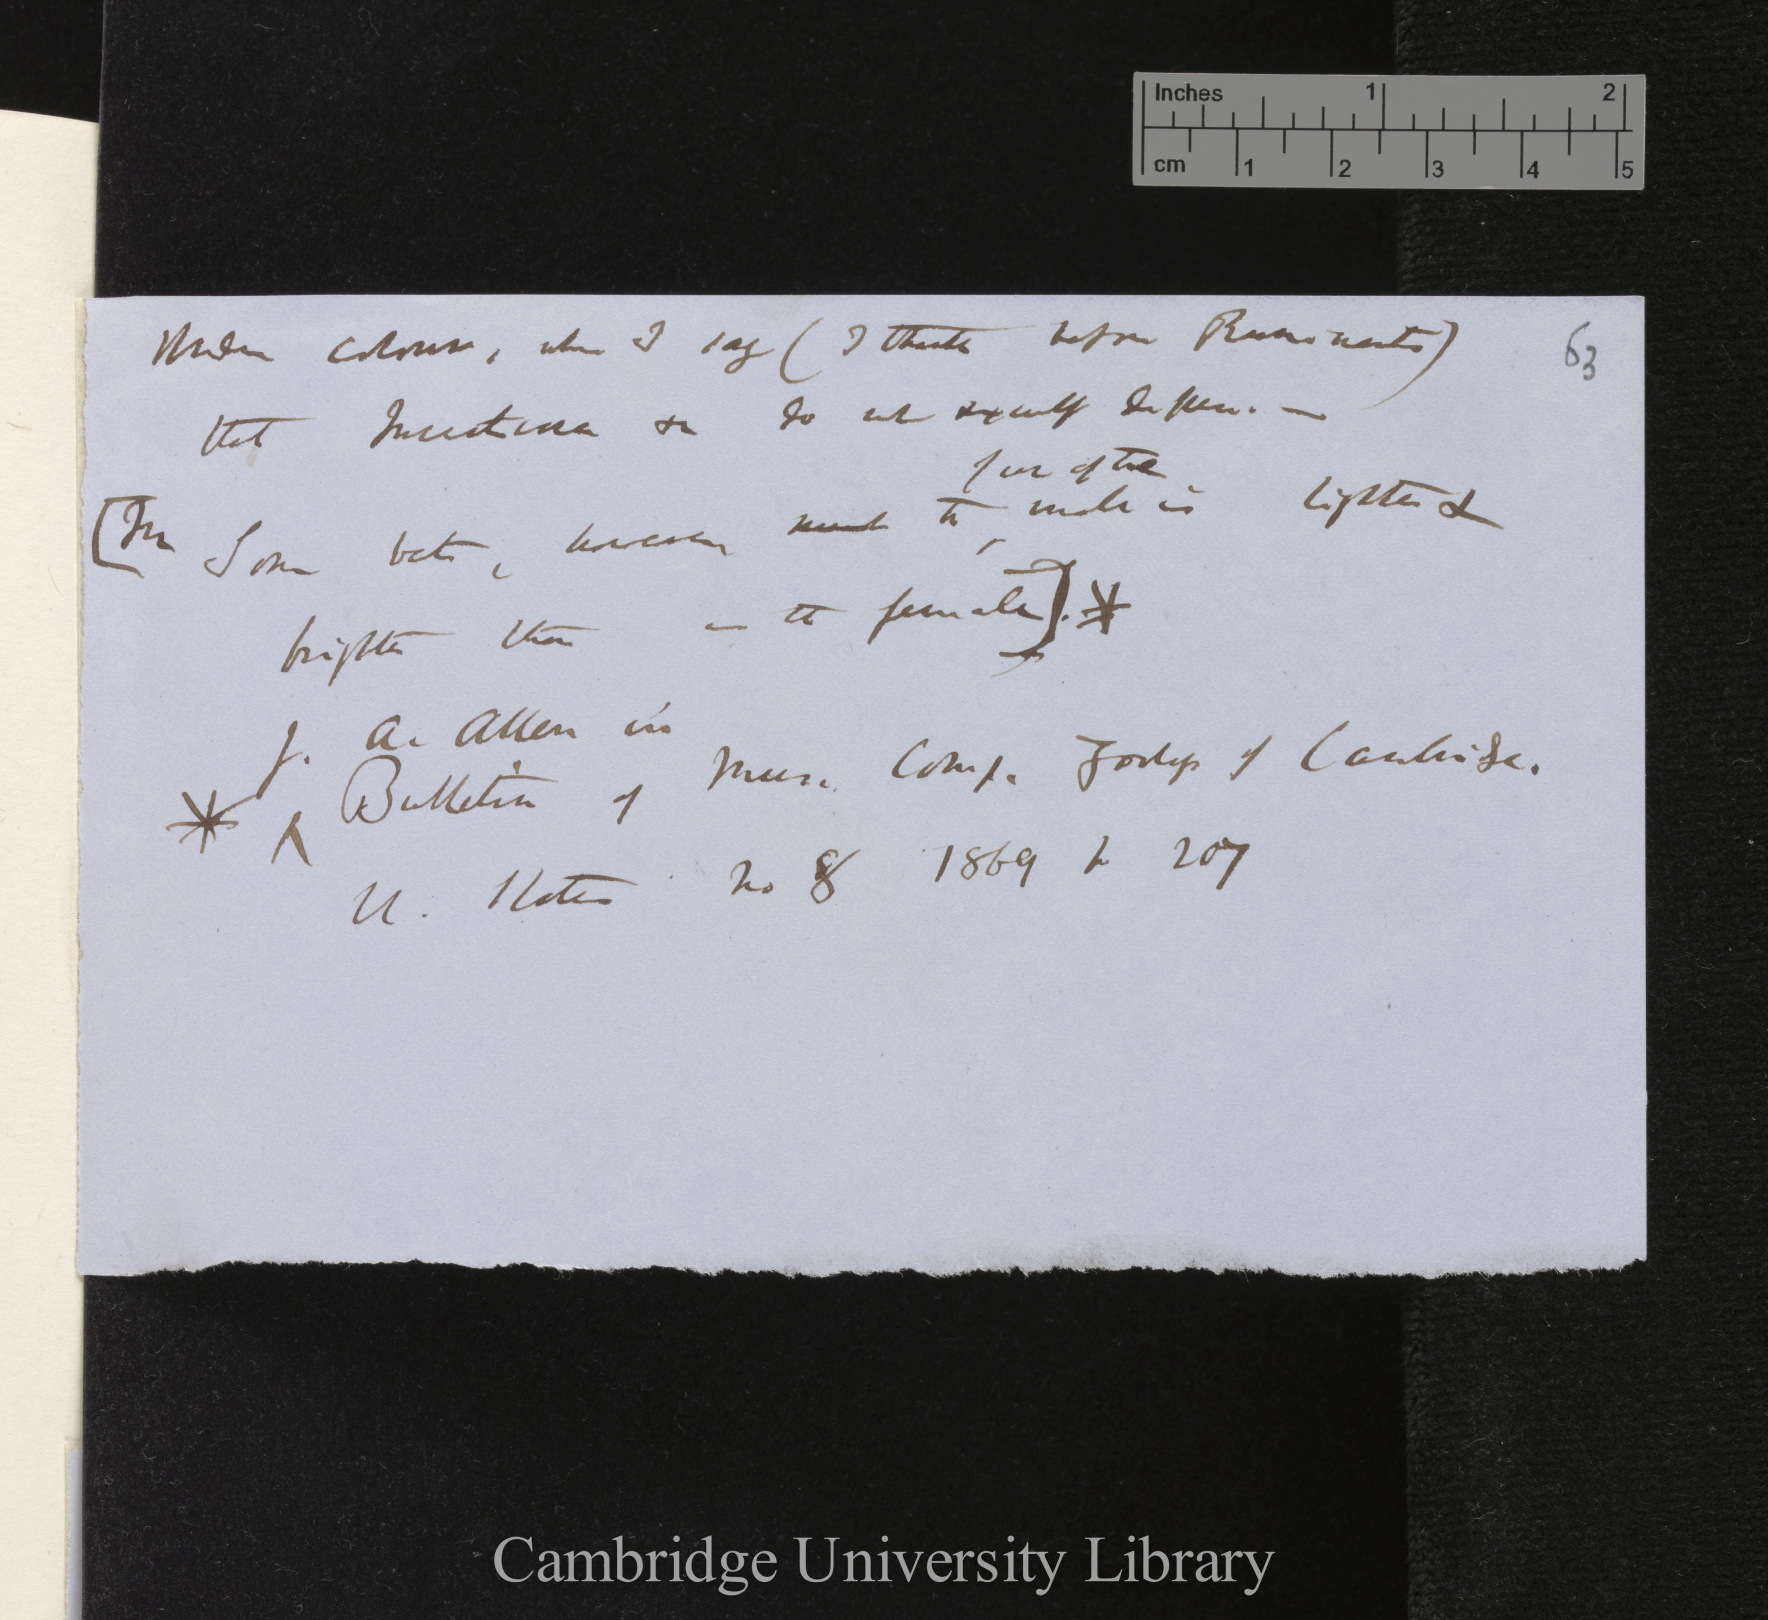 Inches 1 2
cm 1 2 3 4 5
63
Under colours, when I say (I think before Ruminants)
that Insectivora &c do not sexually differ. —
fur of the
[In Some bats, however the male is lighter &
brighter than in the female].*
J. A. Allen in
* Bulletin of Mus. Comp. Zoology of Cambridge.
U. States No 8 1869 p 207
Cambridge University Library